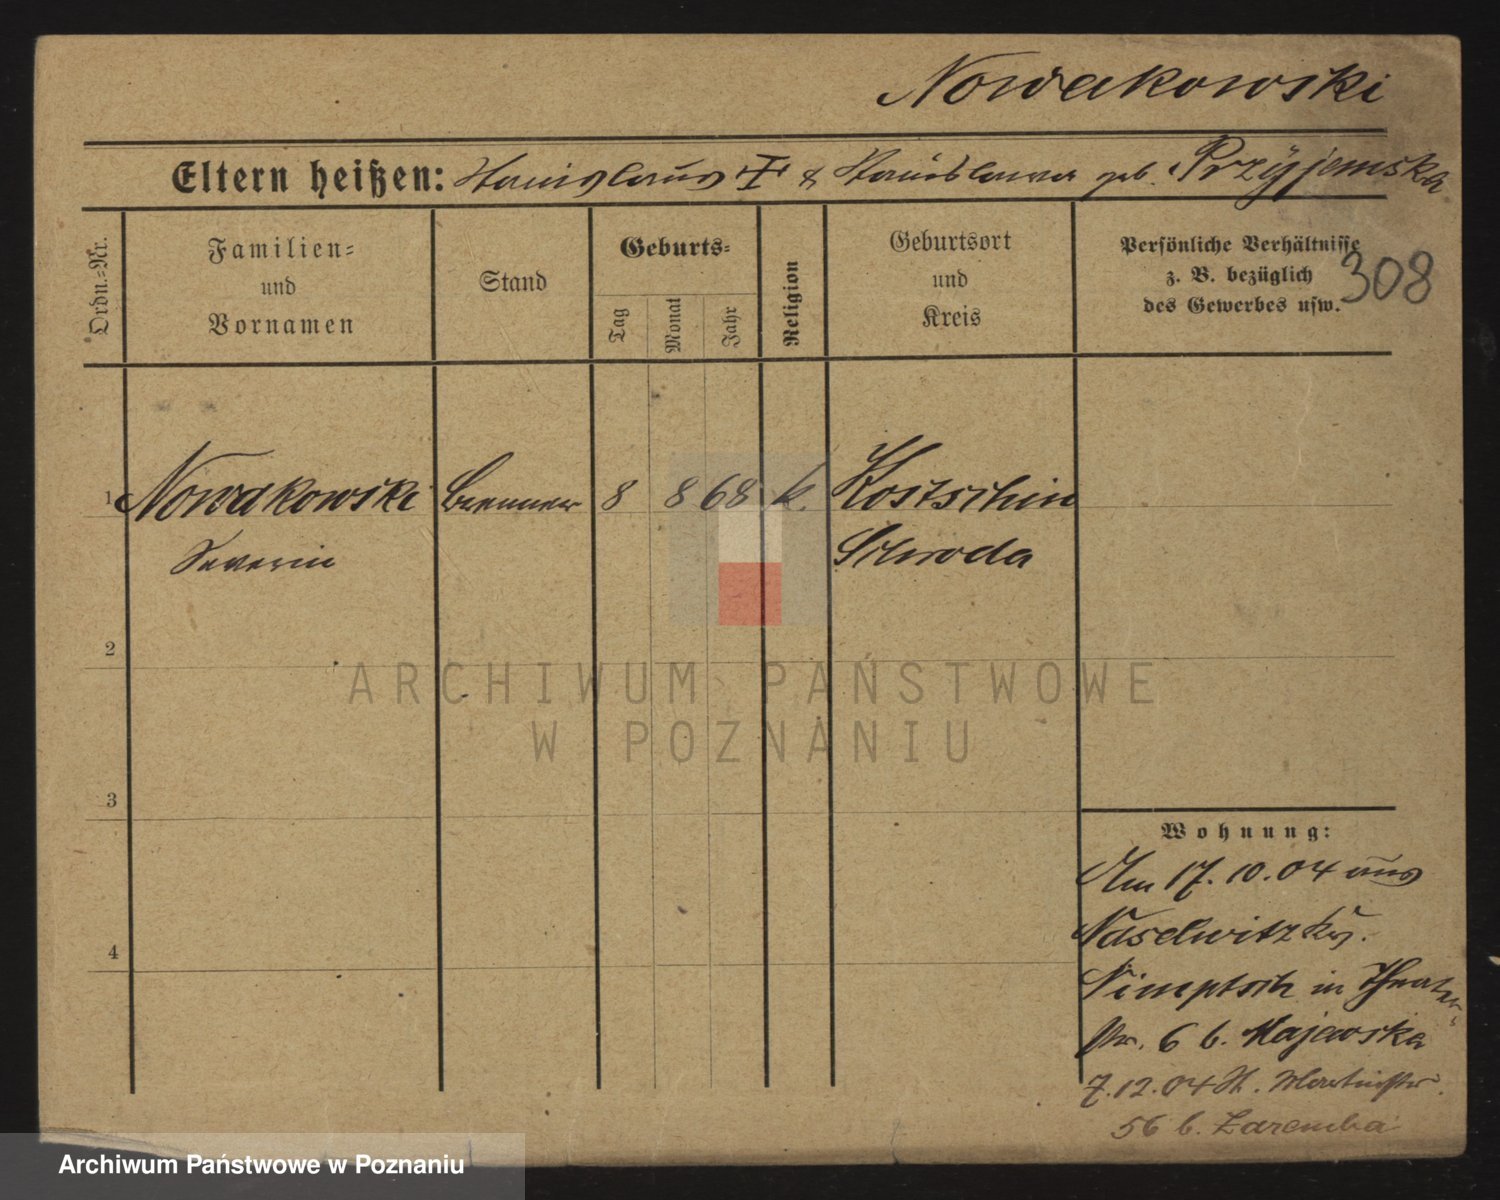 Nowakowski
Eltern heißen: Stanislaus † & Stanislawa geb. Przyjemska
308
Ordn.=Nr.
Familien=
und
Vornamen
Stand
Geburts=
Tag
Monat
Jahr
Religion
Geburtsort
und
Kreis
Persönliche Verhältnisse
z. B. bezüglich
des Gewerbes usw.
1 Nowakowski Brenner 8 8 68 k. Kostschin
Severin Schroda
2
3
4
Wohnung:
Am 17.10.04 aus
Naselwitz Krs.
Nimptsch in Theater
str. 6 b. Majewska
7.12.04 St. Martinstr.
56 b. Zaremba
ARCHIWUM PAŃSTWOWE
W POZNANIU
Archiwum Państwowe w Poznaniu